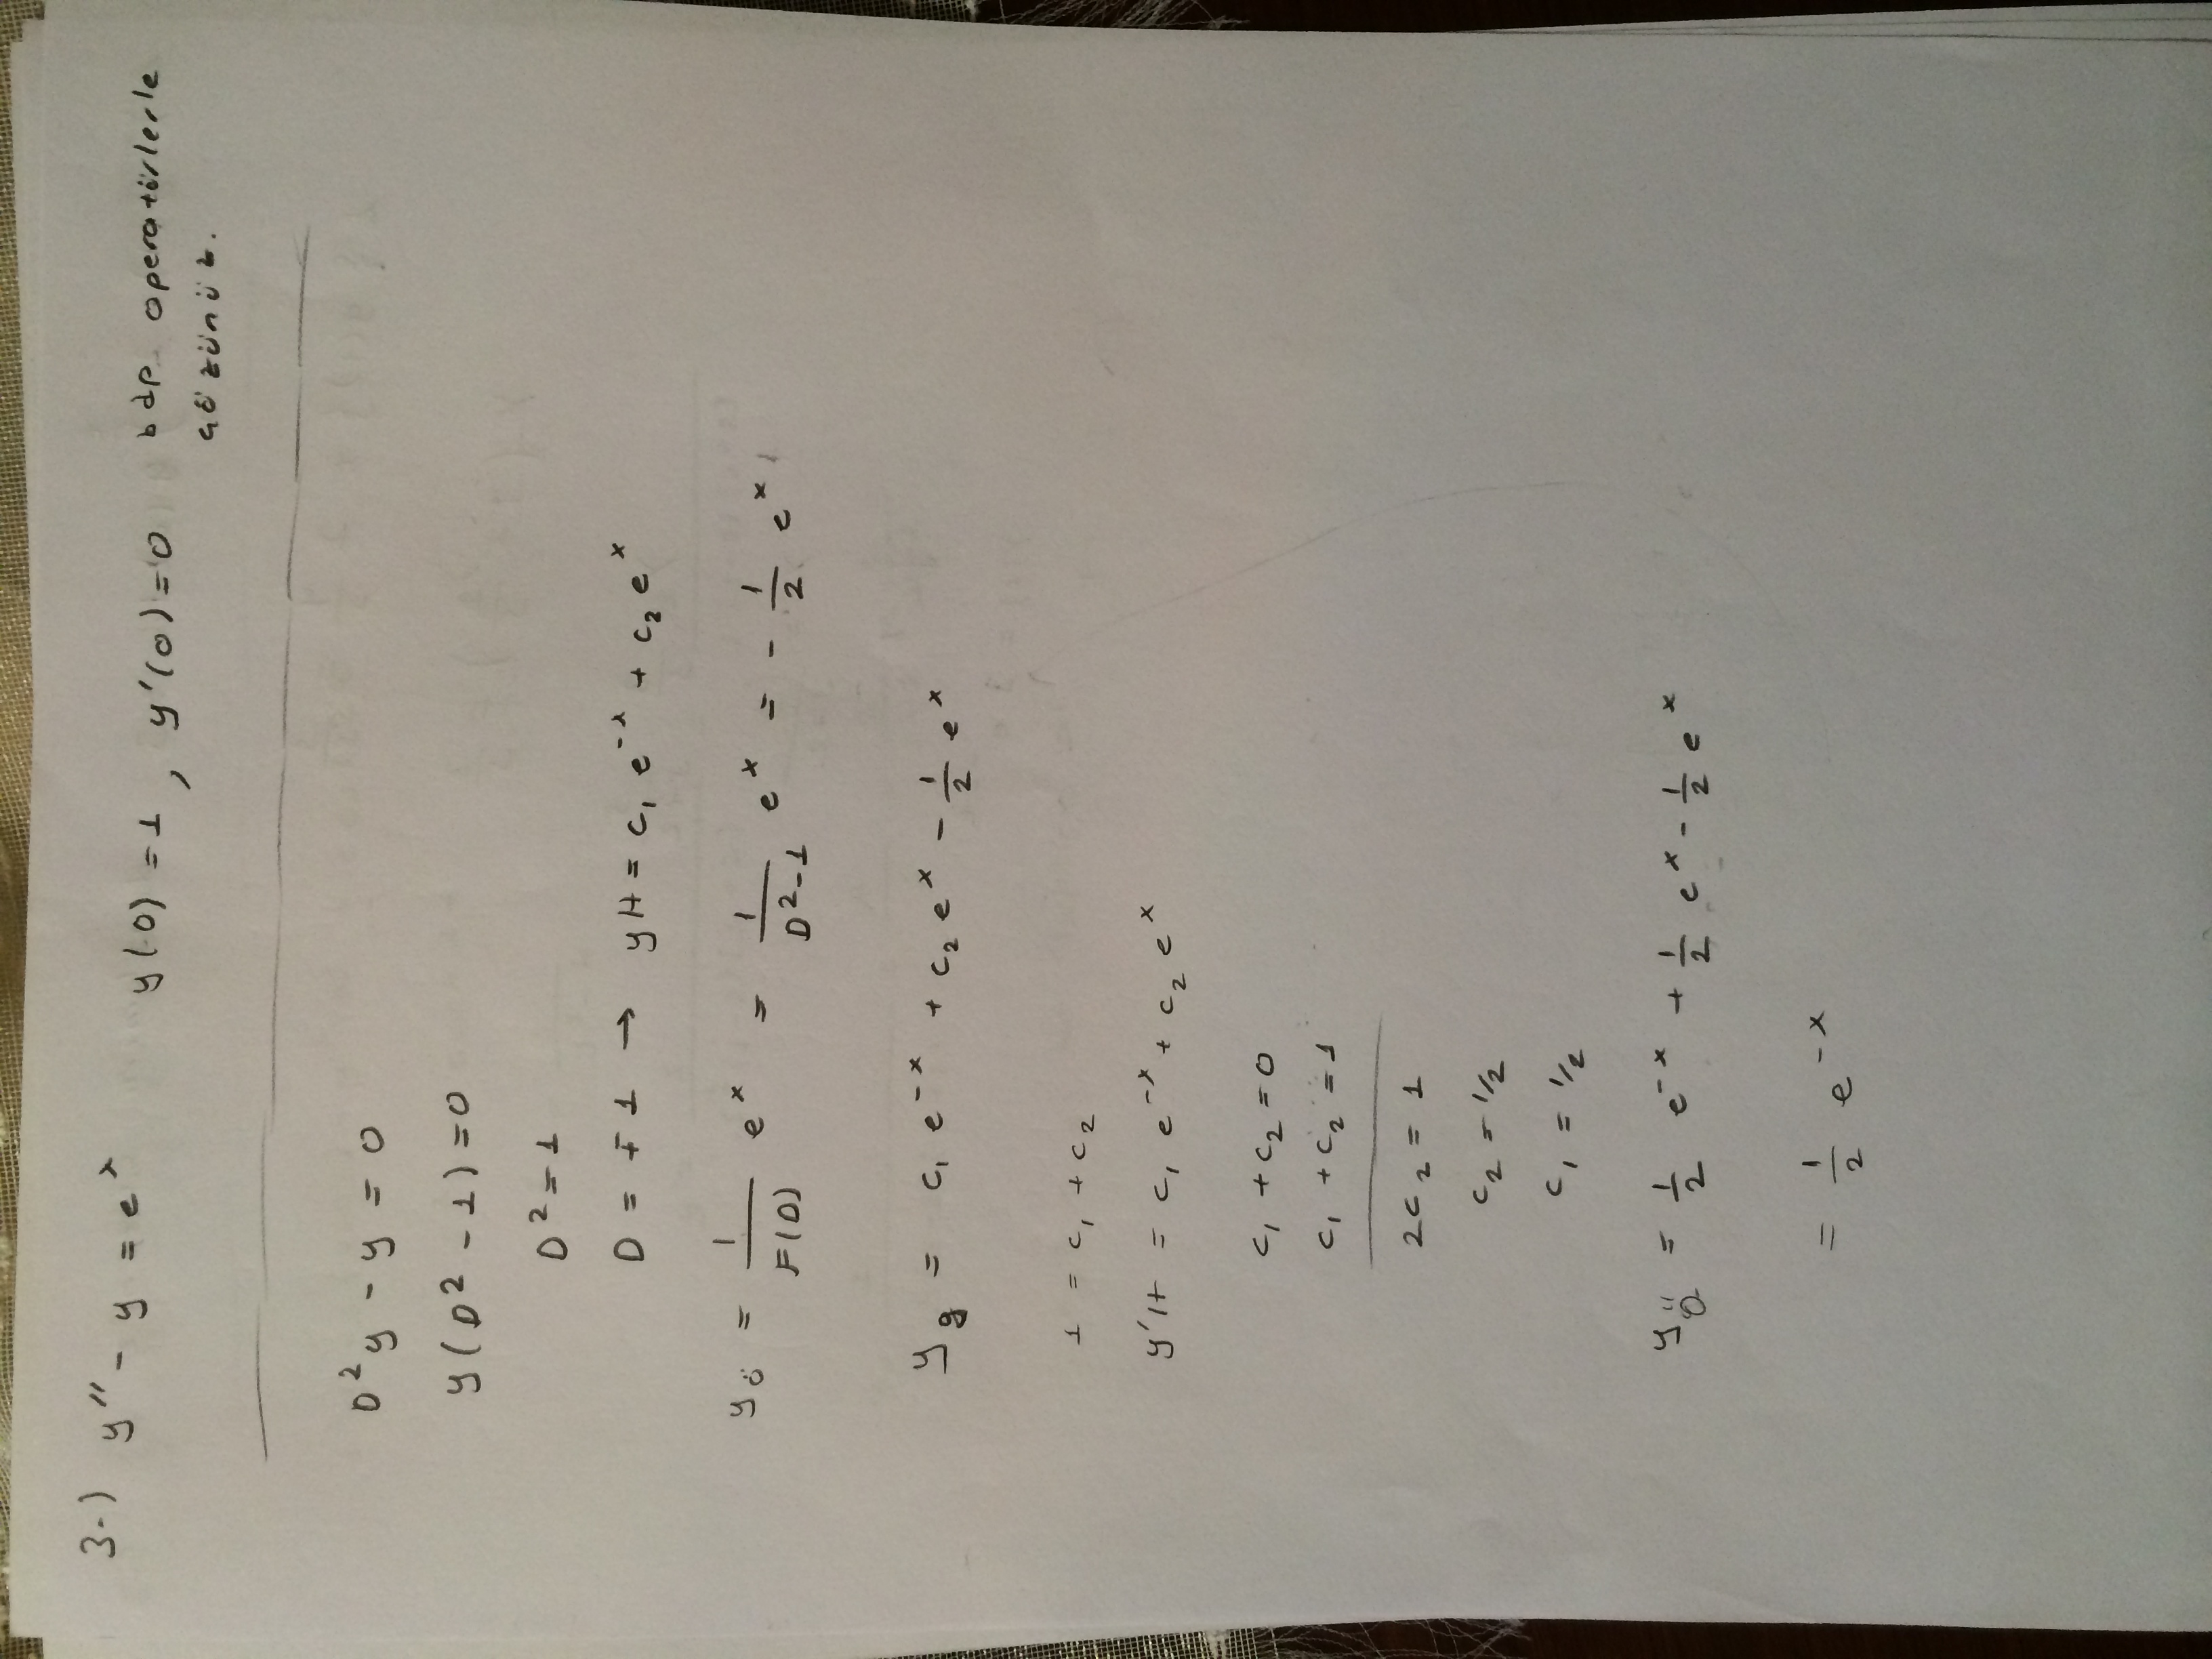 3-) y'' - y = e^x y(0) = 1 , y'(0) = 0 bdp operatörlerle
çözünüz.
D²y - y = 0
y(D² - 1) = 0
D² = 1
D = ∓1 → yH = c₁ e^-x + c₂ e^x
yö = 1/F(D) e^x = 1/(D²-1) e^x = - 1/2 e^x
yg = c₁ e^-x + c₂ e^x - 1/2 e^x
1 = c₁ + c₂
y'H = c₁ e^-x + c₂ e^x
c₁ + c₂ = 0
c₁ + c₂ = 1
2c₂ = 1
c₂ = 1/2
c₁ = 1/2
yÖ = 1/2 e^-x + 1/2 e^x - 1/2 e^x
= 1/2 e^-x